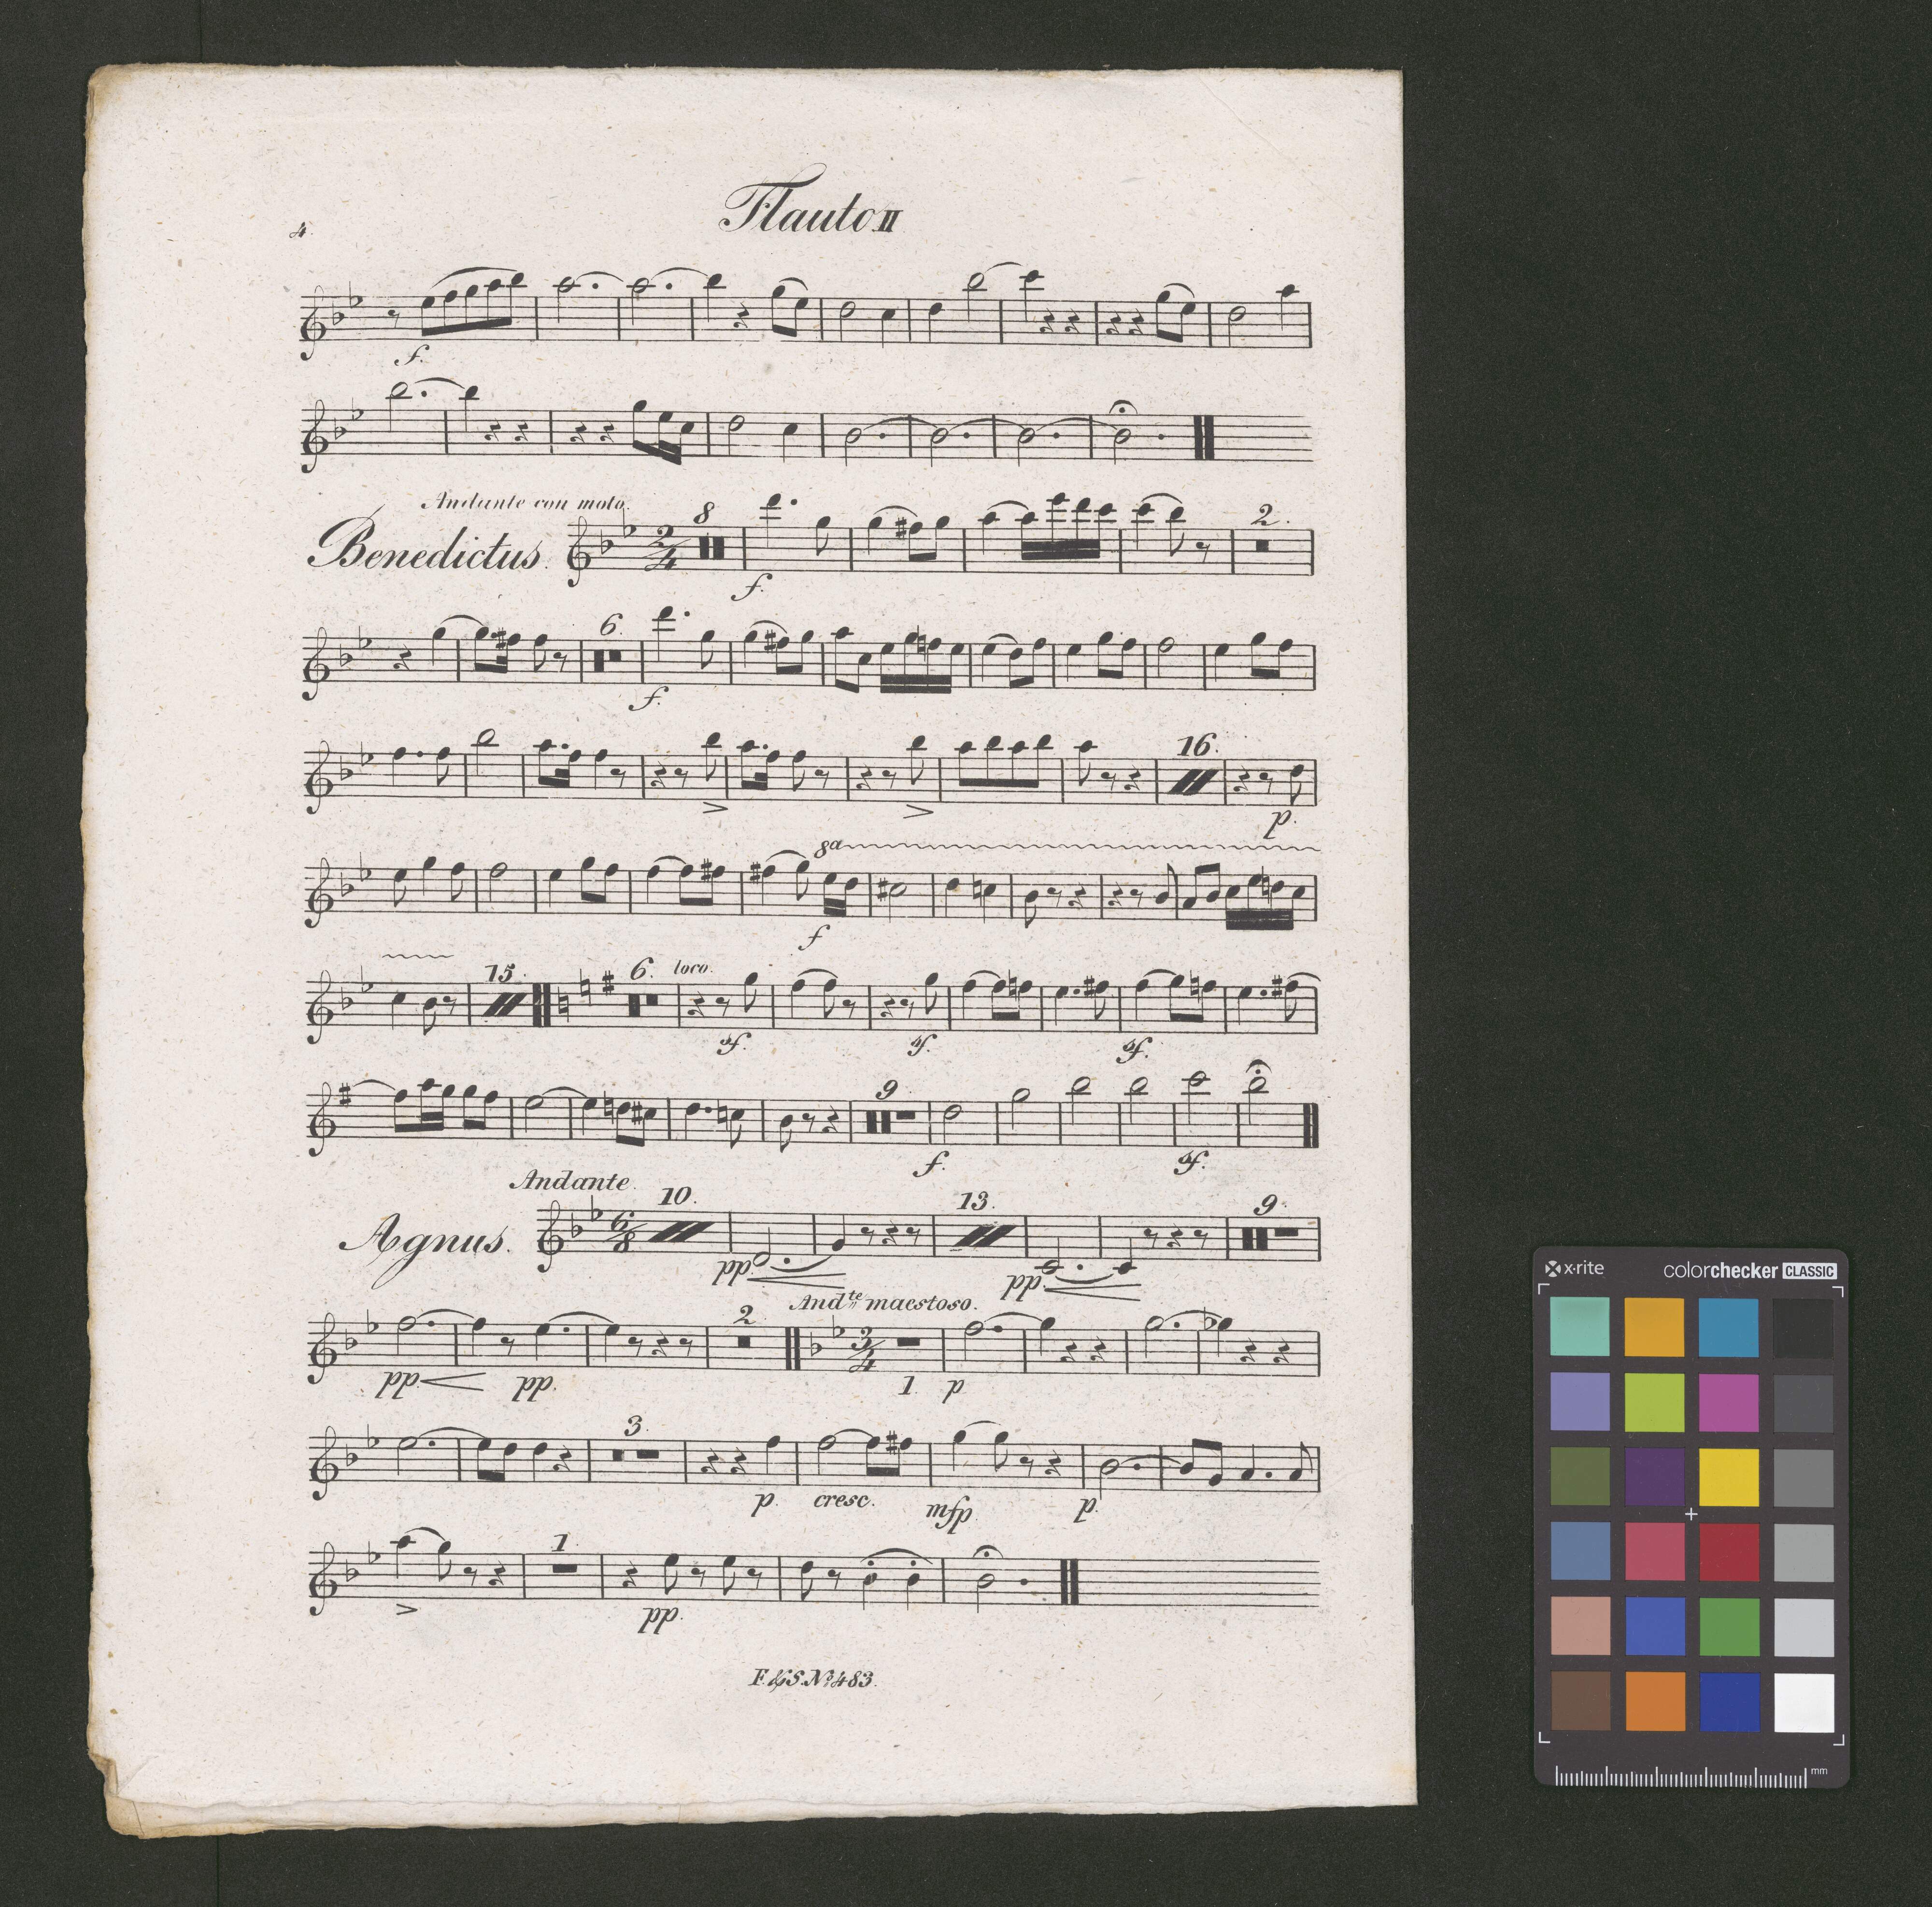 4.
Flauto II
f.
Andante con moto.
8
Benedictus.
2/4
2.
f.
6.
f.
16.
p.
8a
f
15.
6.
loco.
sf.
sf.
sf.
9.
f.
sf.
Andante.
10.
13.
9.
Agnus.
6/8
pp.
pp.
And.te maestoso.
2
3/4
pp.
pp.
1.
p
3.
p.
cresc.
mfp.
p.
1.
pp.
F. & S. No. 483.
x·rite
colorchecker CLASSIC
mm